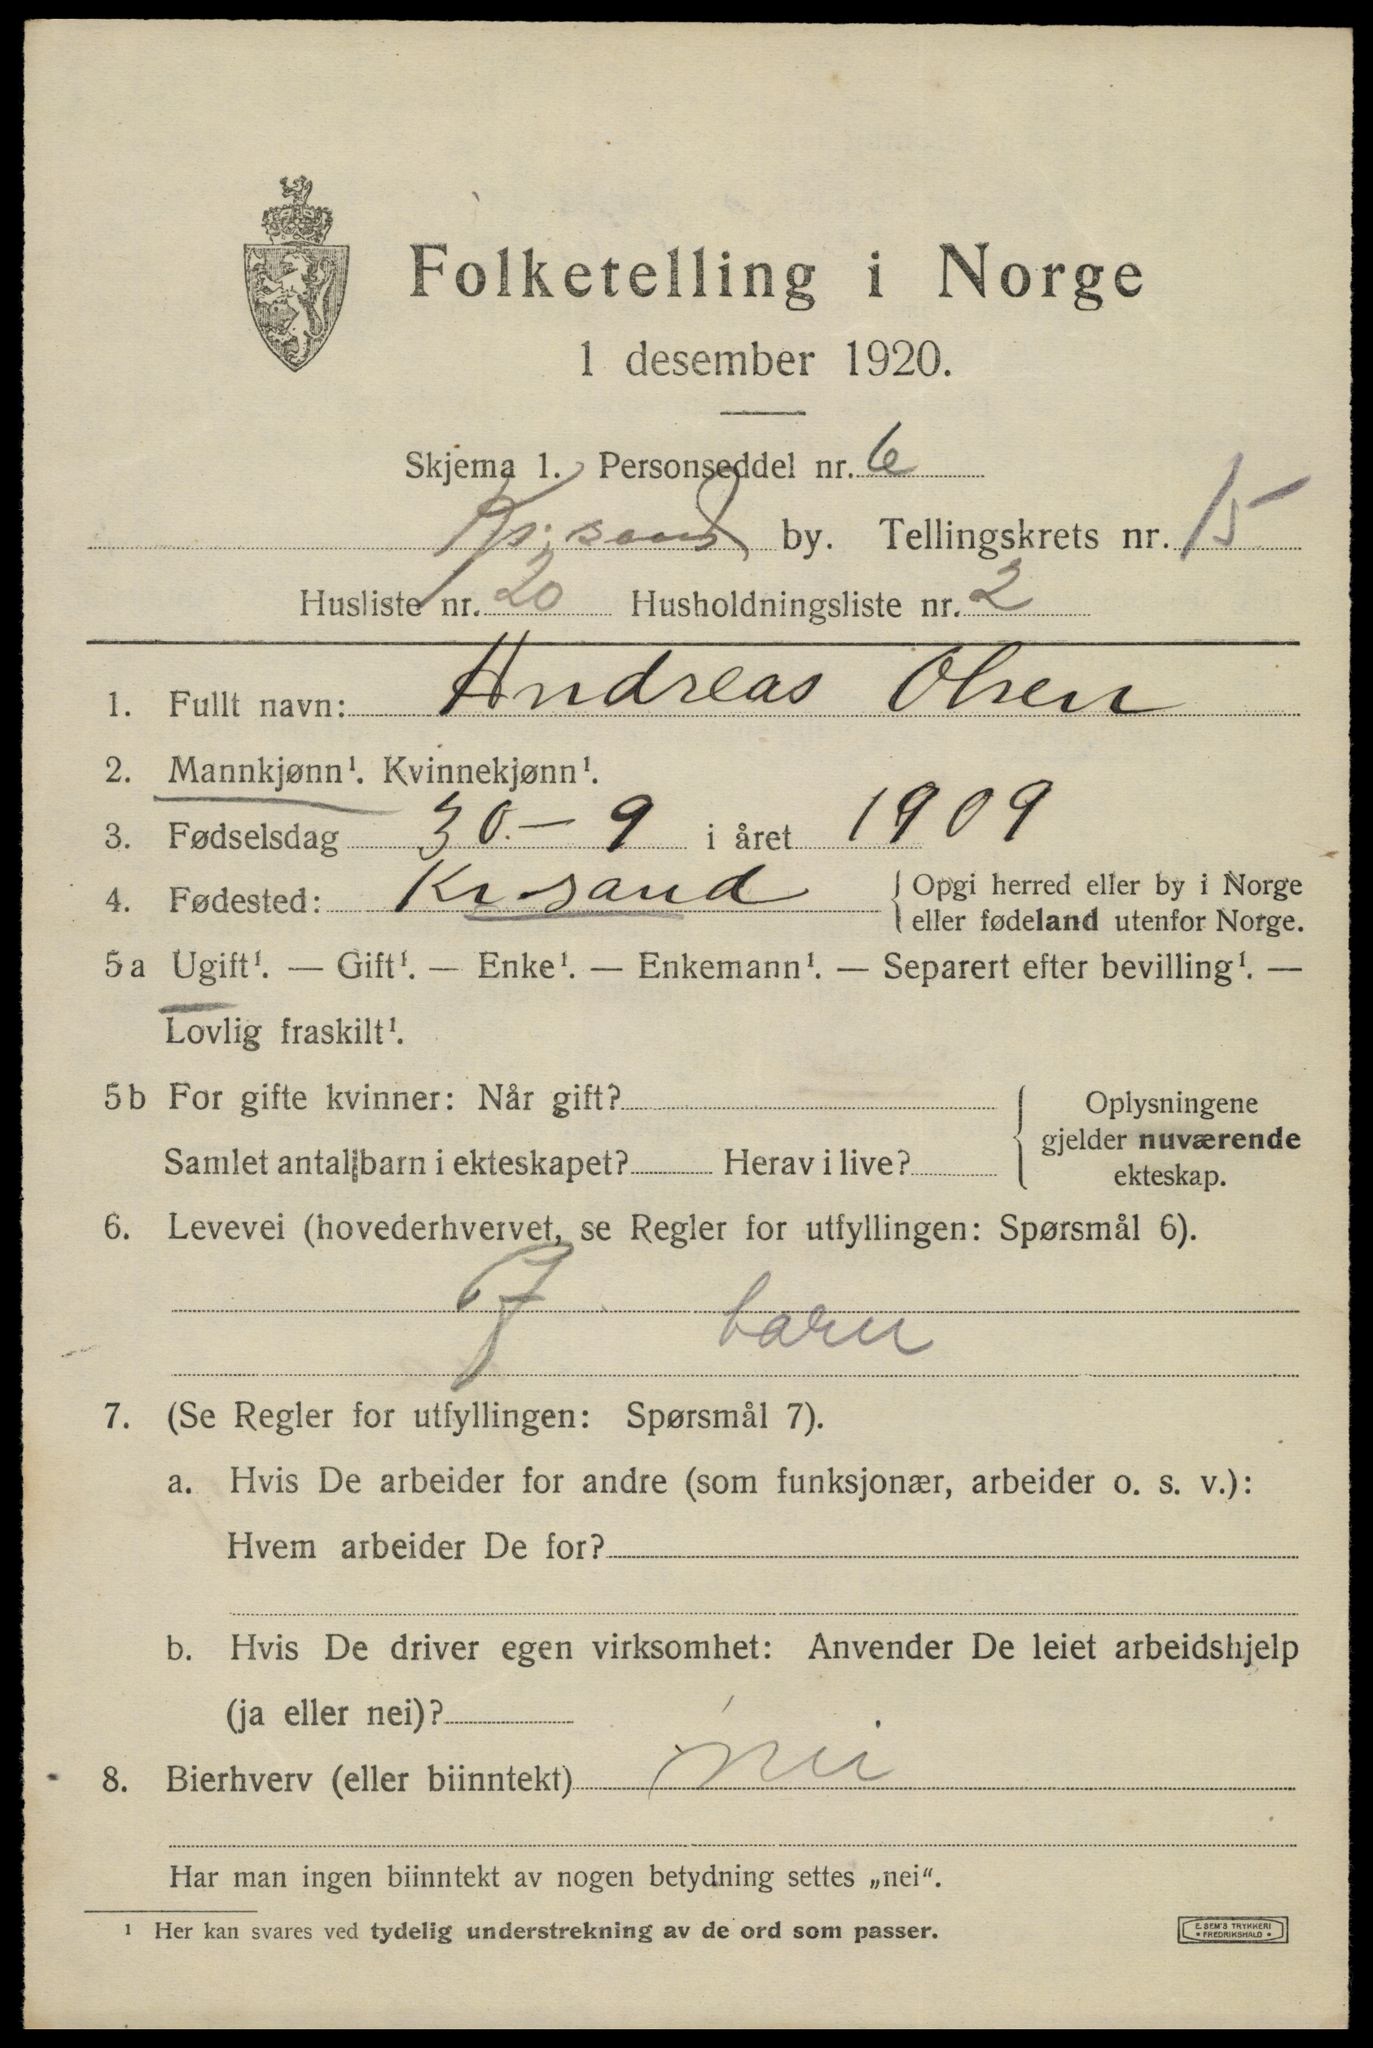 Folketelling i Norge
1 desember 1920.
Skjema 1. Personseddel nr. 6
Kr.sand by. Tellingskrets nr. 15
Husliste nr. 20 Husholdningsliste nr. 2
1. Fullt navn: Andreas Olsen
2. Mannkjønn¹. Kvinnekjønn¹.
3. Fødselsdag 30.-9 i året 1909
4. Fødested: Kr.sand { Opgi herred eller by i Norge
eller fødeland utenfor Norge.
5a Ugift¹. — Gift¹. — Enke¹. — Enkemann¹. — Separert efter bevilling¹. —
Lovlig fraskilt¹.
5b For gifte kvinner: Når gift?
Samlet antal barn i ekteskapet? Herav i live?
Oplysningene
gjelder nuværende
ekteskap.
6. Levevei (hovederhvervet, se Regler for utfyllingen: Spørsmål 6).
barn
7. (Se Regler for utfyllingen: Spørsmål 7).
a. Hvis De arbeider for andre (som funksjonær, arbeider o. s. v.):
Hvem arbeider De for?
b. Hvis De driver egen virksomhet: Anvender De leiet arbeidshjelp
(ja eller nei)?
8. Bierhverv (eller biinntekt) nei
Har man ingen biinntekt av nogen betydning settes „nei“.
¹ Her kan svares ved tydelig understrekning av de ord som passer.
E. SEM'S TRYKKERI
FREDRIKSHALD